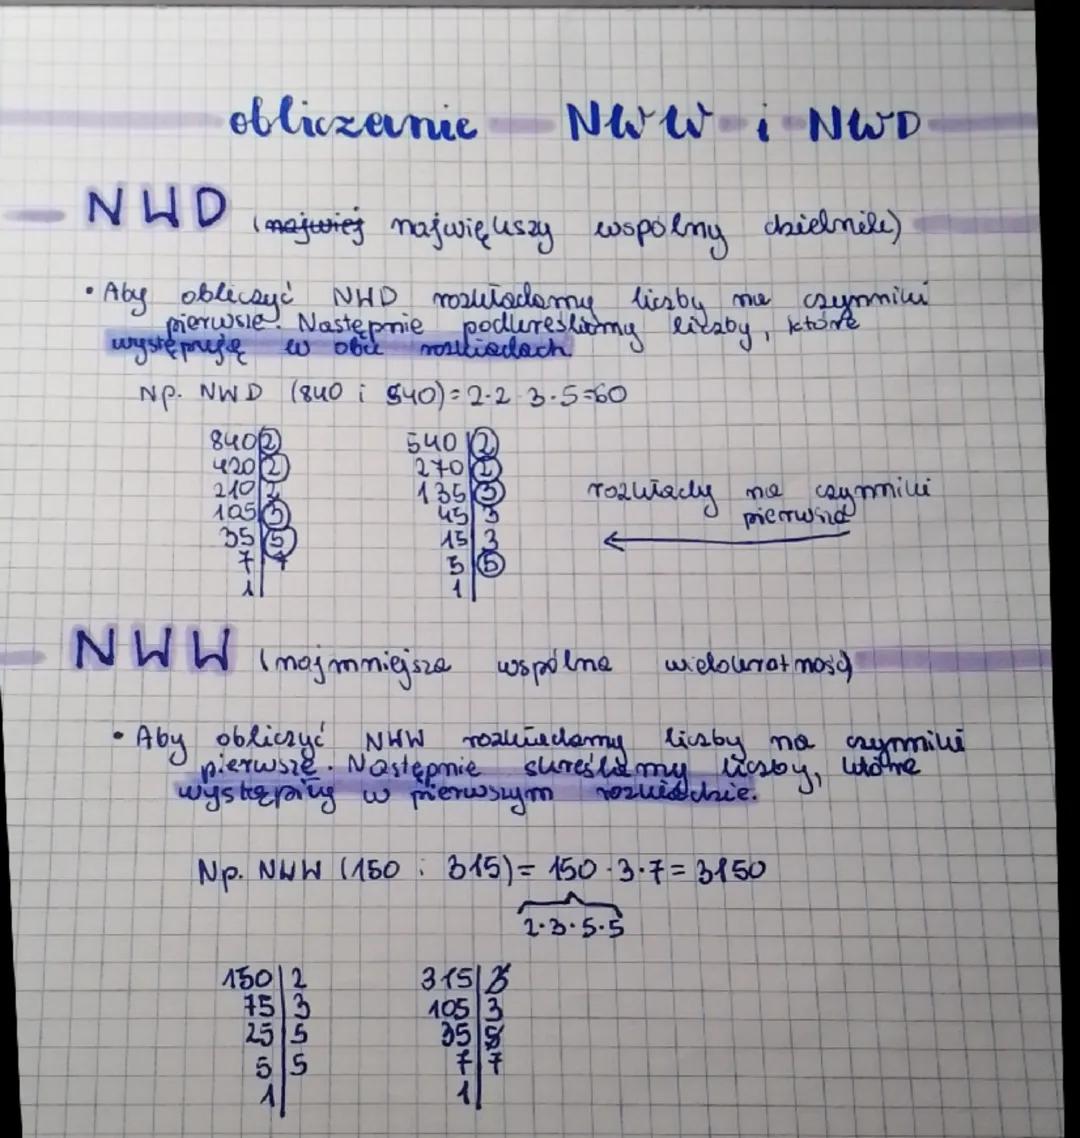 obliczanie NWW i NWD
NWD (najwięj największy wspólny dzielnik)
• Aby obliczyć NWD rozkładamy liczby na czynniki
pierwsze. Następnie podkreślamy liczby, które
występują w obu rozkładach
Np. NWD (840 i 540) = 2·2 3·5=60
840|2 540|2
420|2 270|2
210|2 135|3
105|3 45|3
35|5 15|3
7|7 5|5
1| 1|
rozkłady na czynniki
pierwsze
NWW (najmniejsza wspólna wielokrotność)
• Aby obliczyć NWW rozkładamy liczby na czynniki
pierwsze. Następnie skreślamy liczby, które
wystąpiły w pierwszym rozkładzie.
Np. NWW (150 i 315) = 150·3·7=3150
2·3·5·5
150|2 315|3
75|3 105|3
25|5 35|5
5|5 7|7
1| 1|